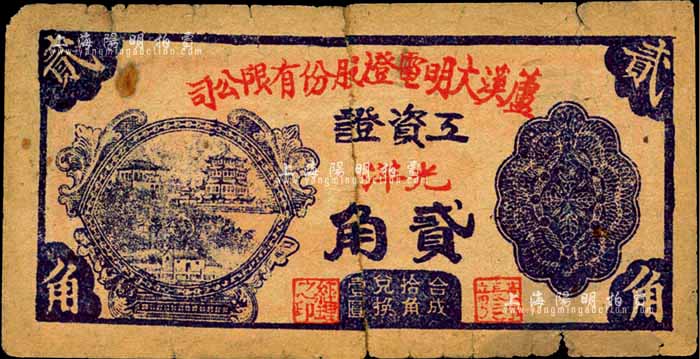 上海陽明拍賣
www.yangmingauction.com
貳
貳
蘆溪大明電燈股份有限公司
工資證
光洋
貳角
合成拾角兌換壹圓
之印
角
角
上海陽明拍賣
www.yangmingauction.com
上海陽明拍賣
www.yangmingauction.com